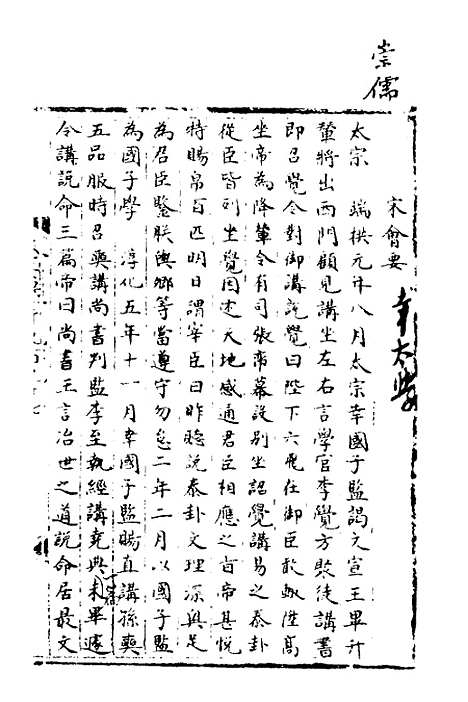 崇儒
宋會要
幸太學
太宗　端拱元年八月太宗幸國子監謁文宣王畢升
輦將出西門顧見講坐左右言學官李覺方聚徒講書
即召覺令對御講說覺曰陛下六飛在御臣敢輒陞高
坐帝為降輦令有司張帟幕設别坐詔覺講易之泰卦
從臣皆列坐覺因述天地感通君臣相應之旨帝甚悅
特賜帛百匹明日謂宰臣曰昨聽說泰卦文理深奥足
為君臣鑒朕與卿等當遵守勿怠二年二月以國子監
為國子學　淳化五年十一月幸國子監賜直講孫奭
五品服時召奭講尚書判監李至執經講堯典未畢遽
令講說命三篇帝曰尚書王言治世之道說命居最文